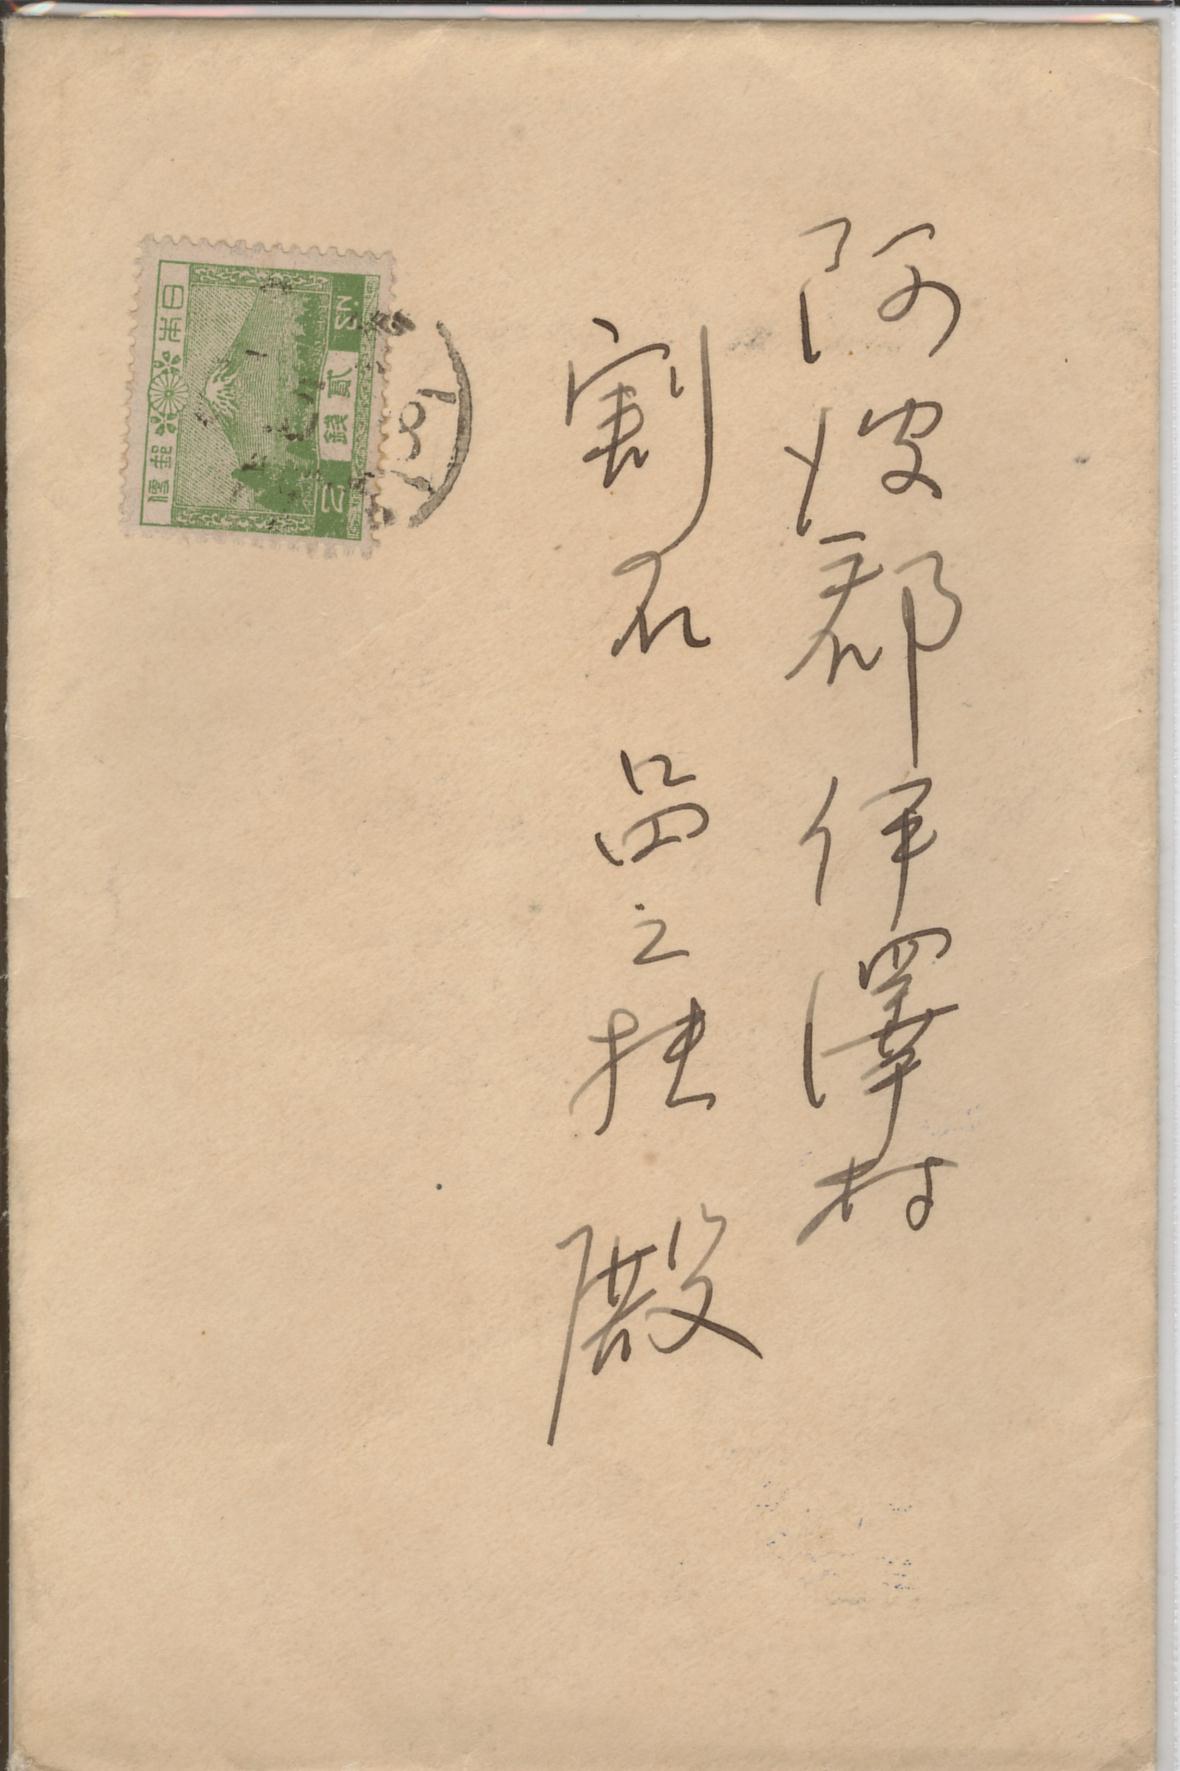 阿波郡伊澤村
割石㽞之扶 殿
日本郵便
貳錢
2 SN